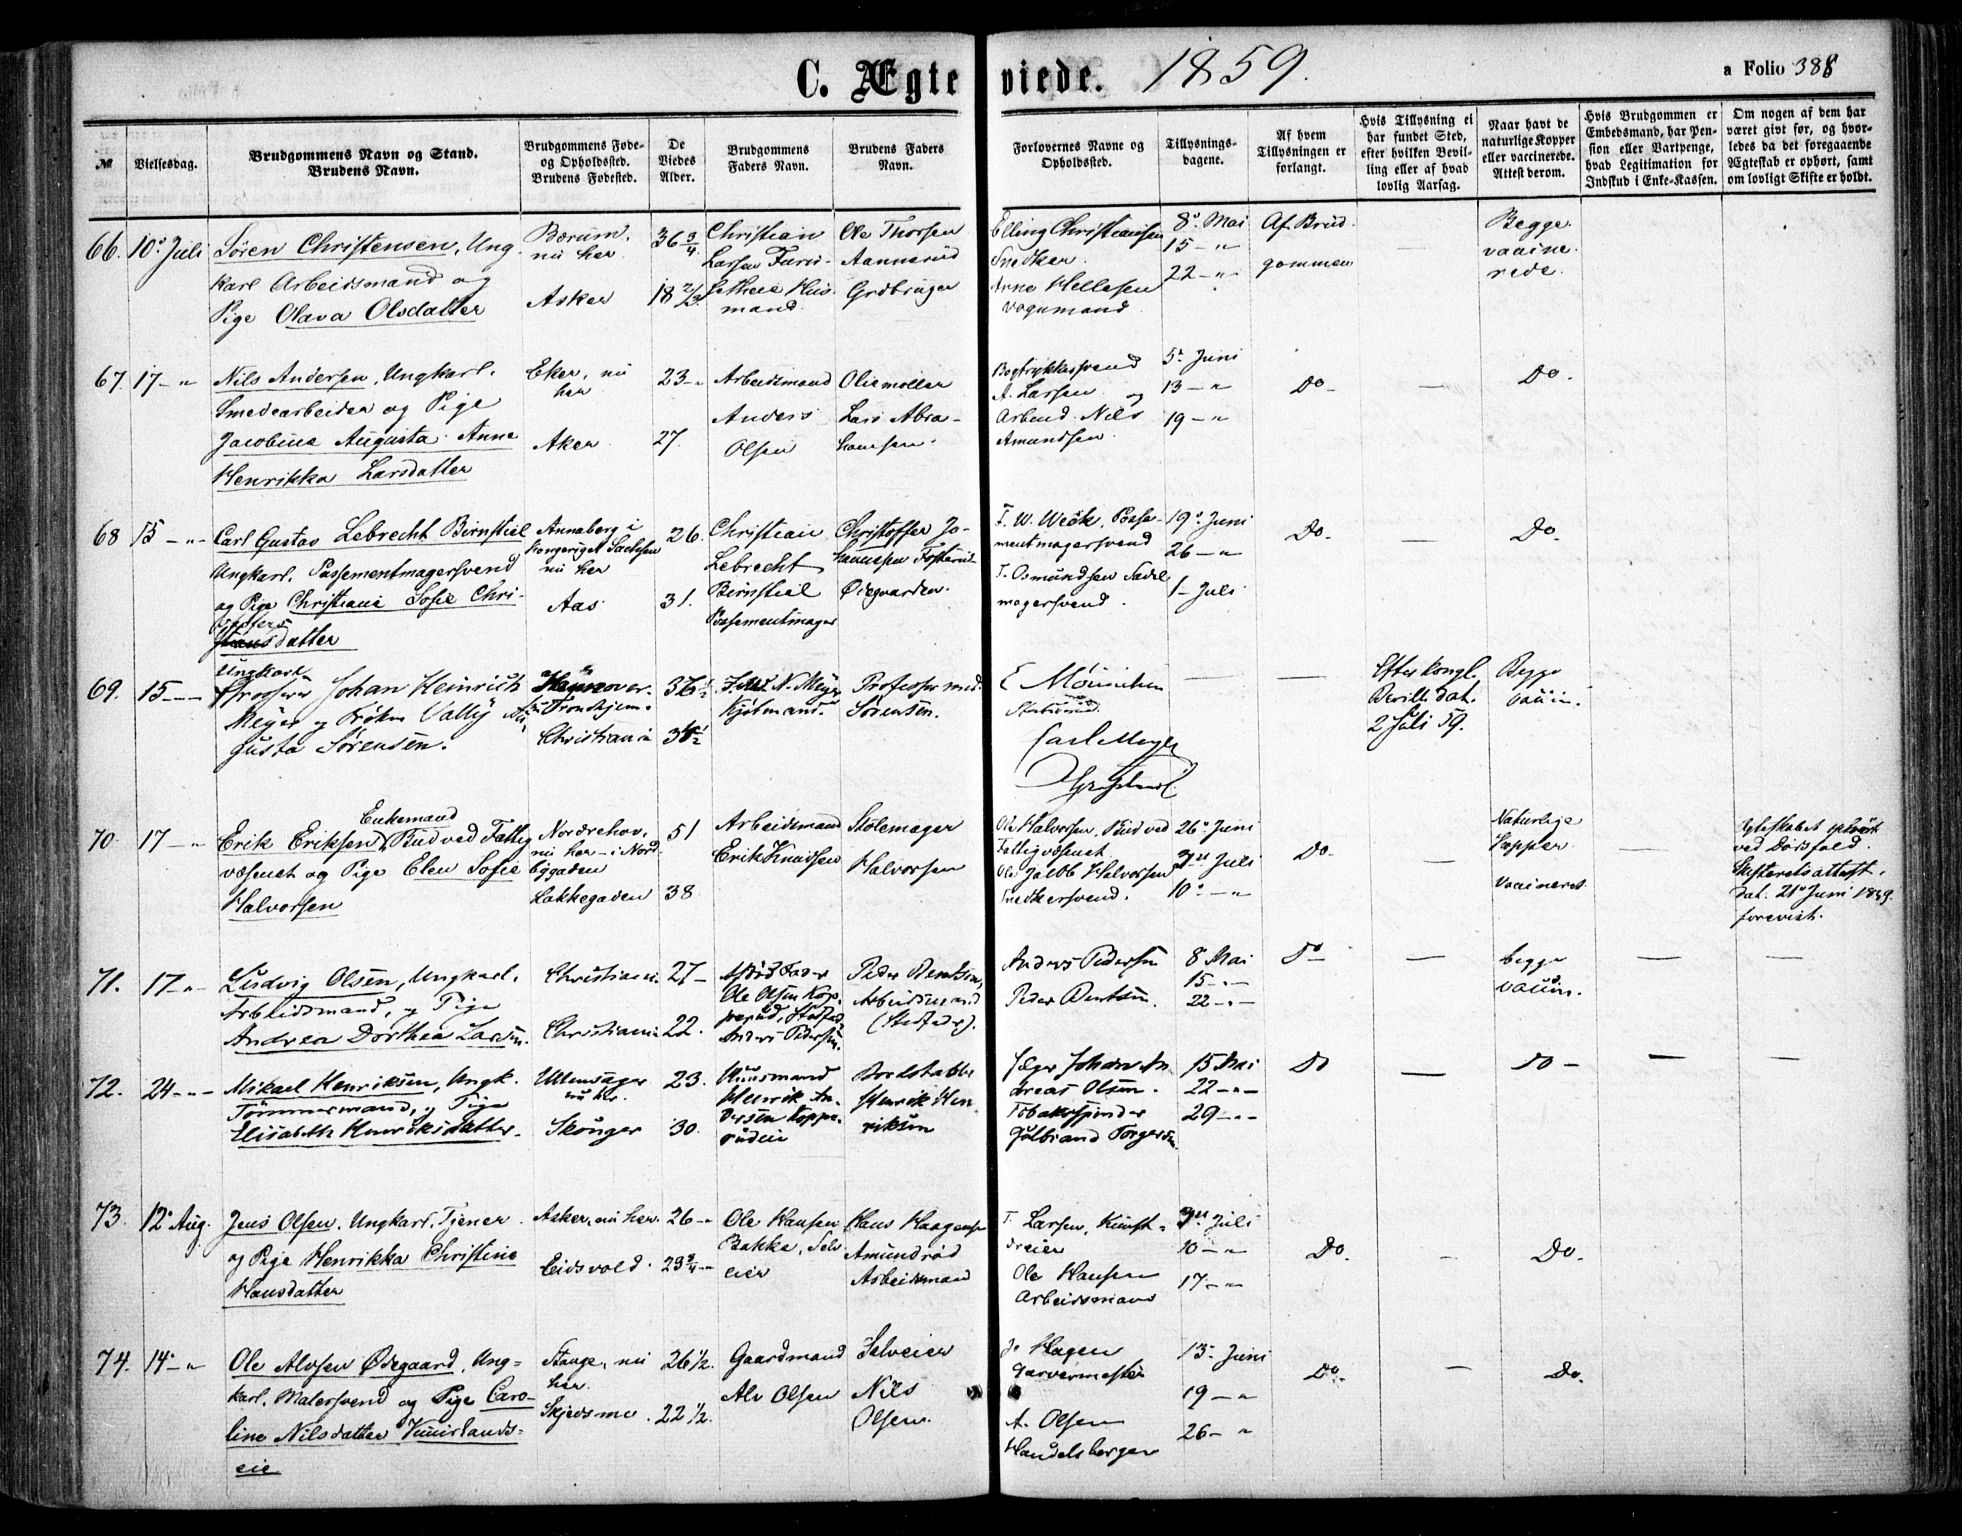 C. Ægteviede. 1859.
a Folio 388
№
Vielsesdag.
Brudgommens Navn og Stand.
Brudens Navn.
Brudgommens Føde-
og Opholdssted.
Brudens Fødested.
De
Viedes
Alder.
Brudgommens
Faders Navn.
Brudens Faders
Navn.
Forlovernes Navne og
Opholdssted.
Tillysnings-
dagene.
Af hvem
Tillysningen er
forlangt.
Hvis Tillysning ei
har fundet Sted,
efter hvilken Bevil-
ling eller af hvad
lovlig Aarsag.
Naar havt de
naturlige Kopper
eller vaccinerede.
Attest derom.
Hvis Brudgommen er
Embedsmand, har Pen-
sion eller Vartpenge,
hvad Legitimation for
Indskud i Enke-Kassen.
Om nogen af dem har
været givt før, og hvor-
ledes da det foregaaende
Ægteskab er ophørt, samt
om lovligt Skifte er holdt.
66. 10. Juli
Søren Christensen, Ung
karl Arbeidsmand og
Pige Olava Olsdatter
Bærum,
nu her.
Asker
36 3/4
18 2/3
Christian
Larsen
mand.
Ole Thorsen
Aannerud
Grdbruger
Elling Christiansen
Snedker.
Arne Hellesen
Vognmand
8. Mai
15 - "
22 - "
Af Brud
gommen
—
Begge
vaccine
rede.
67. 17 - "
Nils Andersen, Ungkarl.
Smedearbeider og Pige
Jacobine Augusta Anne
Henrikka Larsdatter
Eker, nu
her
Aker.
23 - "
27.
Arbeidsmand
Anders
Olsen
Oliemøller
Lars Abra-
hamsen.
Bogtrykkersvend
A. Larsen og
Arbmd. Nils
Amundsen.
5. Juni
13 - "
19 - "
Do
—
Do.
68 15 - "
Carl Gustav Lebrecht Birnstiel
Ungkarl. Possementmagersvend
og Pige Christiane Sofie Chri-
stoffers
datter
Annaberg i
Kongeriget Sachsen
nu her
Aas
26.
31.
Christian
Lebrecht
Birnstiel
Possementmager
Christoffer Jo-
hannesen
Ødegaarden.
F. W. Weok, Posse-
mentmagersvend
T. Osmundsen Sadel
magersvend.
19. Juni
26 - "
1 - Juli
Do.
—
Do.
69. 15 - -
Ungkarl
Johan Heinrich
Meyer og Frøkn Vally Au
gusta Sørensen.
Hannover
Tronhjem.
Christiania
36 1/2
N. Meyer
Kjøbmand.
Professor med.
Sørensen.
E Münichen
Carl Meyer
—
—
Efter kongl.
Bevill. dat.
2 Juli 59.
Begge
vaccin.
70. 17 - "
Enkemand
Erik Eriksen, Bud ved Fattig
væsenet og Pige Elen Sofie
Halvorsen
Norderhov,
nu her - i Nord
bygaden
Lakkegaden
51
38
Arbeidsmand
Erik Knudsen
Stolemager
Halvorsen
Ole Halvorsen, Bud ved
Fattigvæsenet
Ole Jacob Halvorsen
Snedkersvend.
26. Juni
3. Juli
10. - "
Do
—
Naturlige
Kopper
Vaccineret
—
Ægteskabet ophørt
ved Dødsfald.
Skifteretsattest,
dat. 21. Juni 1859.
forevist.
71. 17 - "
Ludvig Olsen, Ungkarl.
Arbeidsmand, og Pige
Andrea Dorthea Larsen.
Christiania
Christiania
27 -
22.
Ole Olsen Kop-
perud, Stedfad.
Anders Pedersen.
Peder Berntsen,
Arbeidsmand
(Stedfader).
Anders Pedersen
Peder Berntsen.
8 Mai
15 - "
22 - "
Do
—
begge
vaccin.
—
—
72. 24 - "
Mikael Henriksen, Ungk.
Tømmermand, og Pige
Elisabeth Henriksdatter.
Ullensager
nu her.
Skonger
23.
30.
Huusmand
Henrik An-
dersen Koppe-
rudeie
Bordstabbe
Henrik Hen
riksen
Johan An
dreas Olsen.
Tobakspinder
Gulbrand Torgersen
15 Mai
22 - "
29 - "
Do
—
Do -
—
—
73. 12. Aug.
Jens Olsen. Ungkarl. Tjener
og Pige Henrikka Christine
Hansdatter
Asker, nu her.
Eidsvold.
26 - "
29 3/4 - "
Ole Hansen
Bakke, Selv
eier
Hans Haagensen
Amundrød
Arbeidsmand
T. Larsen, Kunst-
dreier
Ole Hansen
Arbeidsmand
3. Juli
10 - "
17 - "
Do.
-
Do.
74. 14 - "
Ole Alvsen Ødegaard, Ung-
karl. Malersvend og Pige Caro-
line Nilsdatter
eie
Stange, nu
her.
Skjedsmo.
26 1/2.
22 1/2.
Gaardmand
Alv Olsen
Selveier
Nils
Olsen.
J. Hagen
Garvermester
A. Olsen
Handelsborger
13. Juni
19 - "
26 - "
Do.
—
Do.